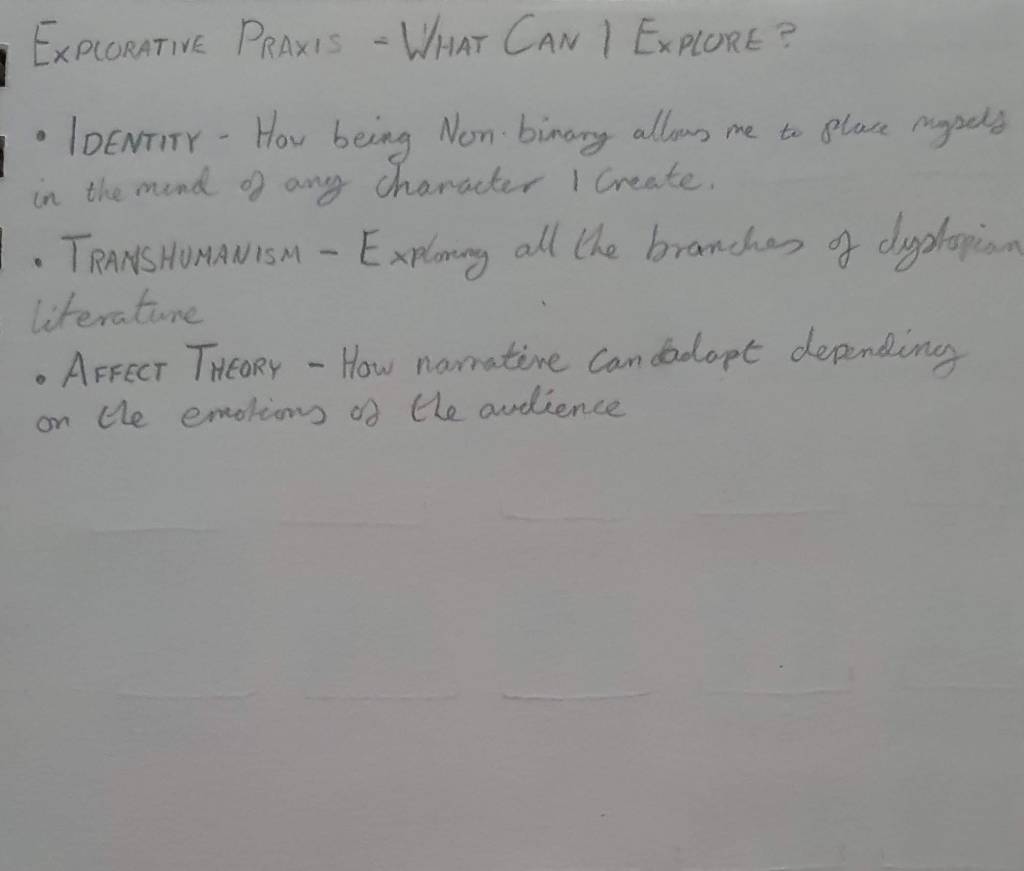 EXPLORATIVE PRAXIS - WHAT CAN I EXPLORE?
• IDENTITY - How being Non-binary allows me to place myself
in the mind of any character I create.
• TRANSHUMANISM - Exploring all the branches of dystopian
literature
• AFFECT THEORY - How narrative can adapt depending
on the emotions of the audience